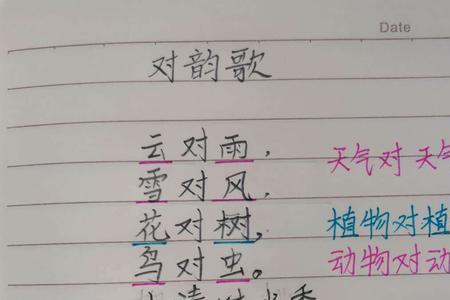 Date
对韵歌
云对雨，
天气对天气
雪对风，
花对树，
植物对植
鸟对虫。
动物对动